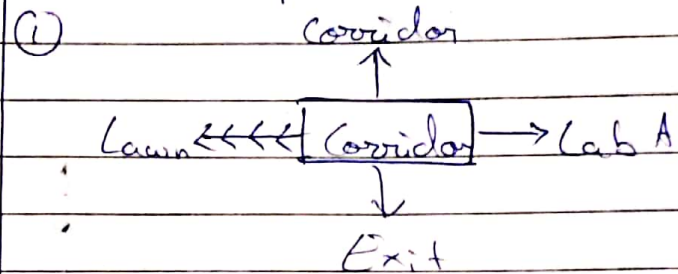 ①
Corridor
Lawn Corridor Lab A
Exit